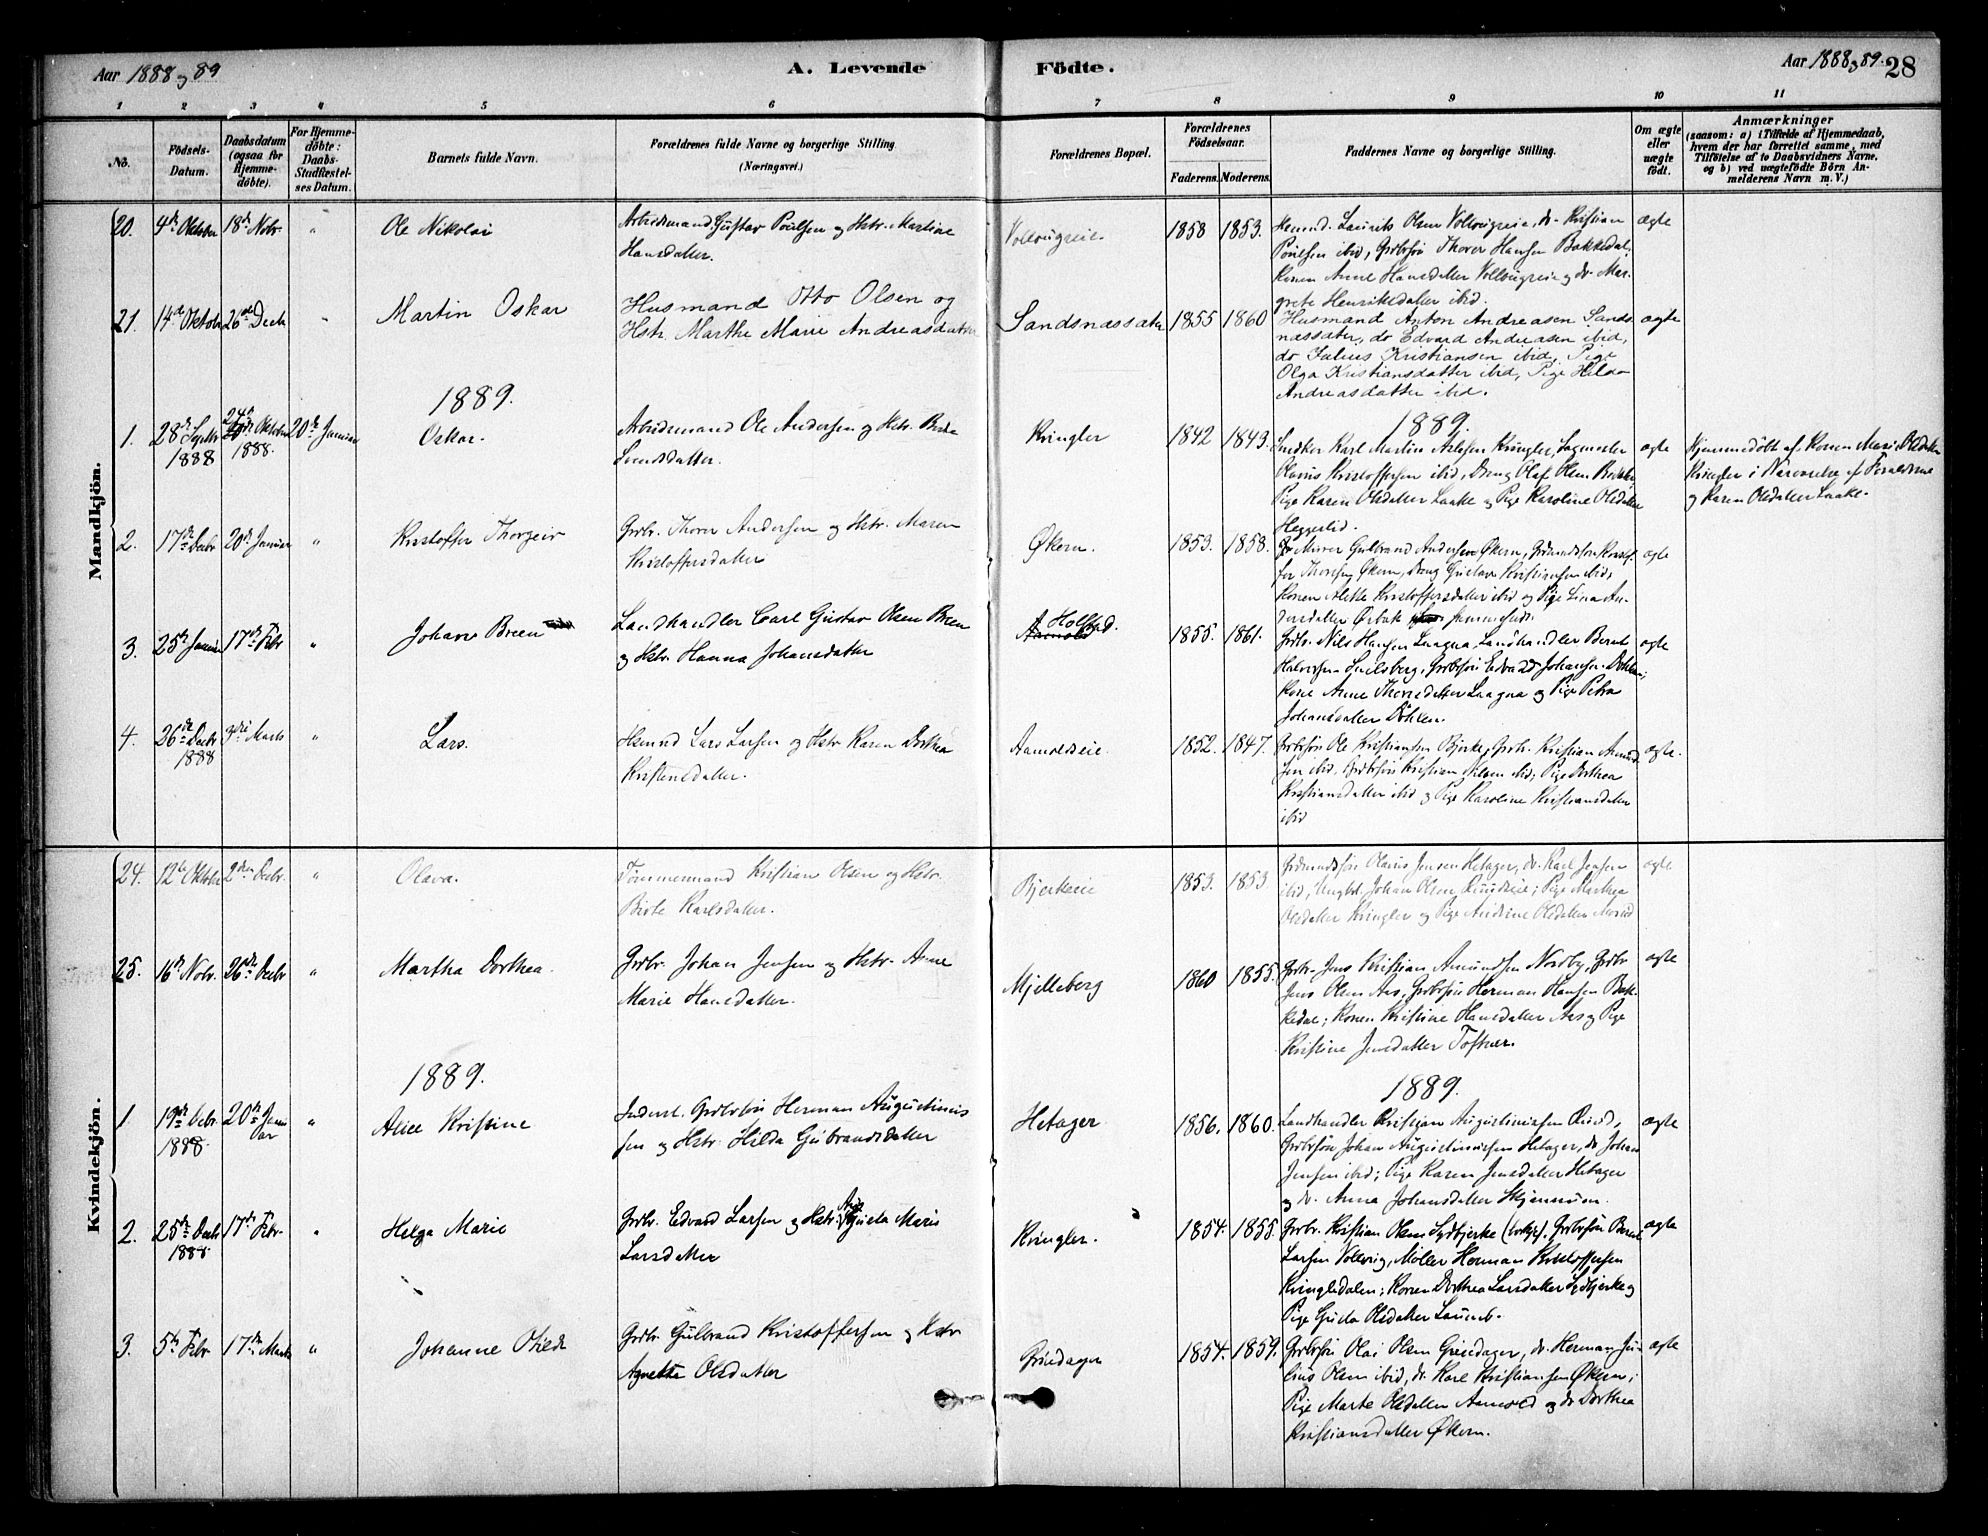 Aar 1888 og 89
A. Levende Födte.
Aar 1888 og 89.
28
1 2 3 4 5 6 7 8 9 10 11
No.
Födsels-Datum.
Daabsdatum (ogsaa for Hjemme-döbte).
For Hjemme-döbte: Daabs-Stadfæstel-ses Datum.
Barnets fulde Navn.
Forældrenes fulde Navne og borgerlige Stilling. (Næringsvei.)
Forældrenes Bopæl.
Forældrenes Födselsaar.
Faderens. Moderens.
Faddernes Navne og borgerlige Stilling.
Om ægte eller uægte födt.
Anmærkninger
(saasom: a) i Tilfælde af Hjemmedaab, hvem der har forrettet samme, med Tilföielse af to Daabsvidners Navne, og b) ved uægtefödte Börn An-melderens Navn m. V.)
Mandkjön.
20. 4de Oktober 18de Novbr. " Ole Nikolai
Arbeidsmand Gustav Poulsen og Hstr. Martine
Hansdatter.
Vollaugseie. 1858 1853.
Husmd. Laurits Olsen Vollaugseie, do Kristian
Poulsen ibid, Grdbrsön Thorer Hansen Bakkedal,
Konen Anne Hansdatter Vollaugseie og do Mar-
grete Henriksdatter ibid.
ægte
21. 14de Oktobr 26de Decbr " Martin Oskar
Husmand Otto Olsen og
Hstr. Marthe Marie Andreasdatter
Sandsnæssæter 1855 1860
Husmand Anton Andreasen Sands-
næssæter, do Edvard Andreasen ibid,
do Julius Kristiansen ibid, Pige
Olga Kristiansdatter ibid, Pige Hilda
Andreasdatter ibid.
ægte
1889.
1889.
1. 28de Septbr 1888 24de Oktober 1888. 20de Januar Oskar.
Arbeidsmand Ole Andersen og Hstr. Berte
Svendsdatter.
Kringler 1842 1843.
Snedker Karl Martin Kringler, Lagmester
Olaus Kristoffersen ibid, Dreng Olaf Olsen
Pige Karen Olsdatter Laake og Pige Karoline Olsdatter
Heggelid.
ægte
Hjemmedöbt af Konen Mari Olsdatter
Kringler i Nærværelse af Forældrene
og Karen Olsdatter Laake.
2. 17de Decbr 20de Januar " Kristoffer Thorgeir
Grdbr. Thorer Andersen og Hstr. Maren
Kristoffersdatter
Økern. 1853. 1858.
Murer Gulbrand Andersen Økern, Grdmandssön Kristof-
fer Thoresen Økern, Dreng Gustav Kristiansen ibid,
Konen Alette Kristoffersdatter ibid og Pige Lina An-
dersdatter Ørbæk
ægte
3. 25de Januar 17de Febr " Johan Breen
Landhandler Carl Gustav Olsen Breen
og Hstr. Hanna Johansdatter
Aamold Holstad. 1855. 1861.
Grdbr. Nils Hansen Laagua, Landhandler Bernt
Halvorsen Smilsberg, Grdbrsön Edvard Johansen Döhlen;
Kone Anne Thoresdatter Laagua og Pige Petra
Johansdatter Döhlen.
ægte
4. 26de Decbr 1888 3die Marts " Lars.
Husmd Lars Larsen og Hstr. Karen Dorthea
Kristensdatter.
Aamoldseie. 1852. 1847.
Grdbrsön Ole Kristiansen Bjerke, Grdbr. Kristian Amund-
sen ibid, Grdbrsön Kristian Nilsen ibid; Pige Dorthea
Kristiansdatter ibid og Pige Karoline Kristiansdatter
ibid
ægte.
Kvindekjön.
24. 12te Oktober 2den Decbr. " Olava.
Tömmermand Kristian Olsen og Hstr.
Birte Karlsdatter.
Bjerkeeie 1853. 1853
Grdmandssön Olaus Jensen Hetager, do Karl Jensen
ibid, Ungkl. Johan Olsen Ruudseie; Pige Marthea
Olsdatter Kringler og Pige Andrine Olsdatter
ægte
25. 16de Novbr. 26de Decbr " Martha Dorthea.
Grdbr. Johan Jensen og Hstr. Anne
Marie Hansdatter.
Mjelleberg 1860 1855.
Grdbr. Jens Kristian Amundsen Nordby, Grdbr
Jens Olsen Aas, Grdbrsön Herman Hansen Bak-
kedal; Konen Kristine Hansdatter Aas og Pige
Kristine Jensdatter Toftner.
ægte
1889.
1889.
1. 19de Decbr. 1888. 20de Januar " Alice Kristine
Inderst. Grdbrsön Herman Augustinus-
sen og Hstr. Hilda Gulbrandsdatter
Hetager 1856. 1860.
Landhandler Kristian Augustinussen Ruud,
Grdbrsön Johan Augustinussen Hetager, do Johan
Jensen ibid; Pige Karen Jensdatter Hetager
og do Anna Johansdatter Skjennum.
ægte
2. 25de Decbr 1888 17de Febr. " Helga Marie
Grdbr. Edvard Larsen og Hstr. Gusta Marie
Larsdatter
Kringler. 1854. 1855.
Grdbr. Kristian Olsen Sydbjerke Grdbrsön Bernt
Larsen Vollaug, Møller Herman Kristoffersen
Kringlerdalen; Konen Dorthea Larsdatter Sydbjerke og
Pige Gusta Olsdatter Laumb.
ægte
3. 5te Febr 17de Marts " Johanne Otilde
Grdbr. Gulbrand Kristoffersen og Hstr
Agnethe Olsdatter
Griedager 1854. 1859.
Grdbrsön Olai Olsen Griedager, do Herman Ju-
lius Olsen ibid, do Karl Kristiansen Økern;
Pige Marte Olsdatter Aamold og do Dorthea
Kristiansdatter Økern.
ægte